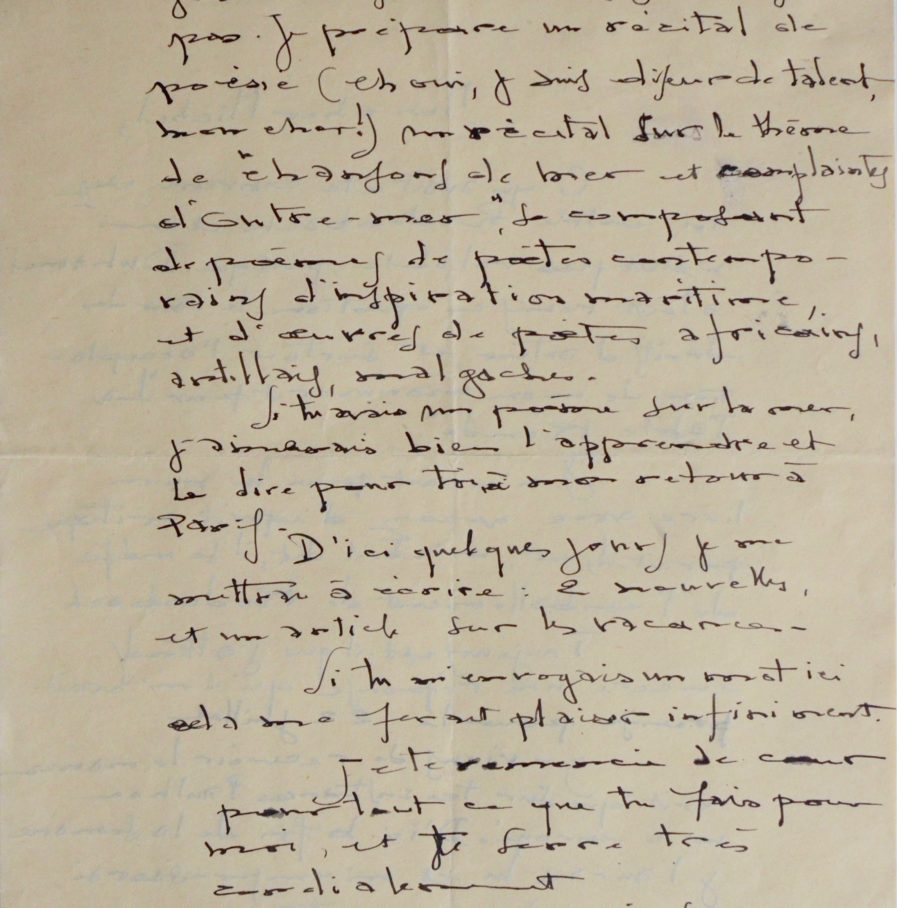 pas. Je prépare un récital de
poésie (eh oui, j suis diseur de talent,
mon cher!) un récital sur le thème
de "chansons de mer et complaintes
d'Outre-mer", se composant
de poèmes de poètes contempo-
rains d'inspiration maritime,
et d'œuvres de poètes africains,
antillais, malgaches.
Si tu avais un poème sur la mer,
j'aimerais bien l'apprendre et
le dire pour toi, à mon retour à
Paris.
D'ici quelques jours je me
mettrai à écrire : 2 nouvelles,
et un article sur les vacances.-
Si tu m'envoyais un mot ici
cela me ferait plaisir infiniment.
Je te remercie de cœur
pour tout ce que tu fais pour
moi, et te serre très
cordialement